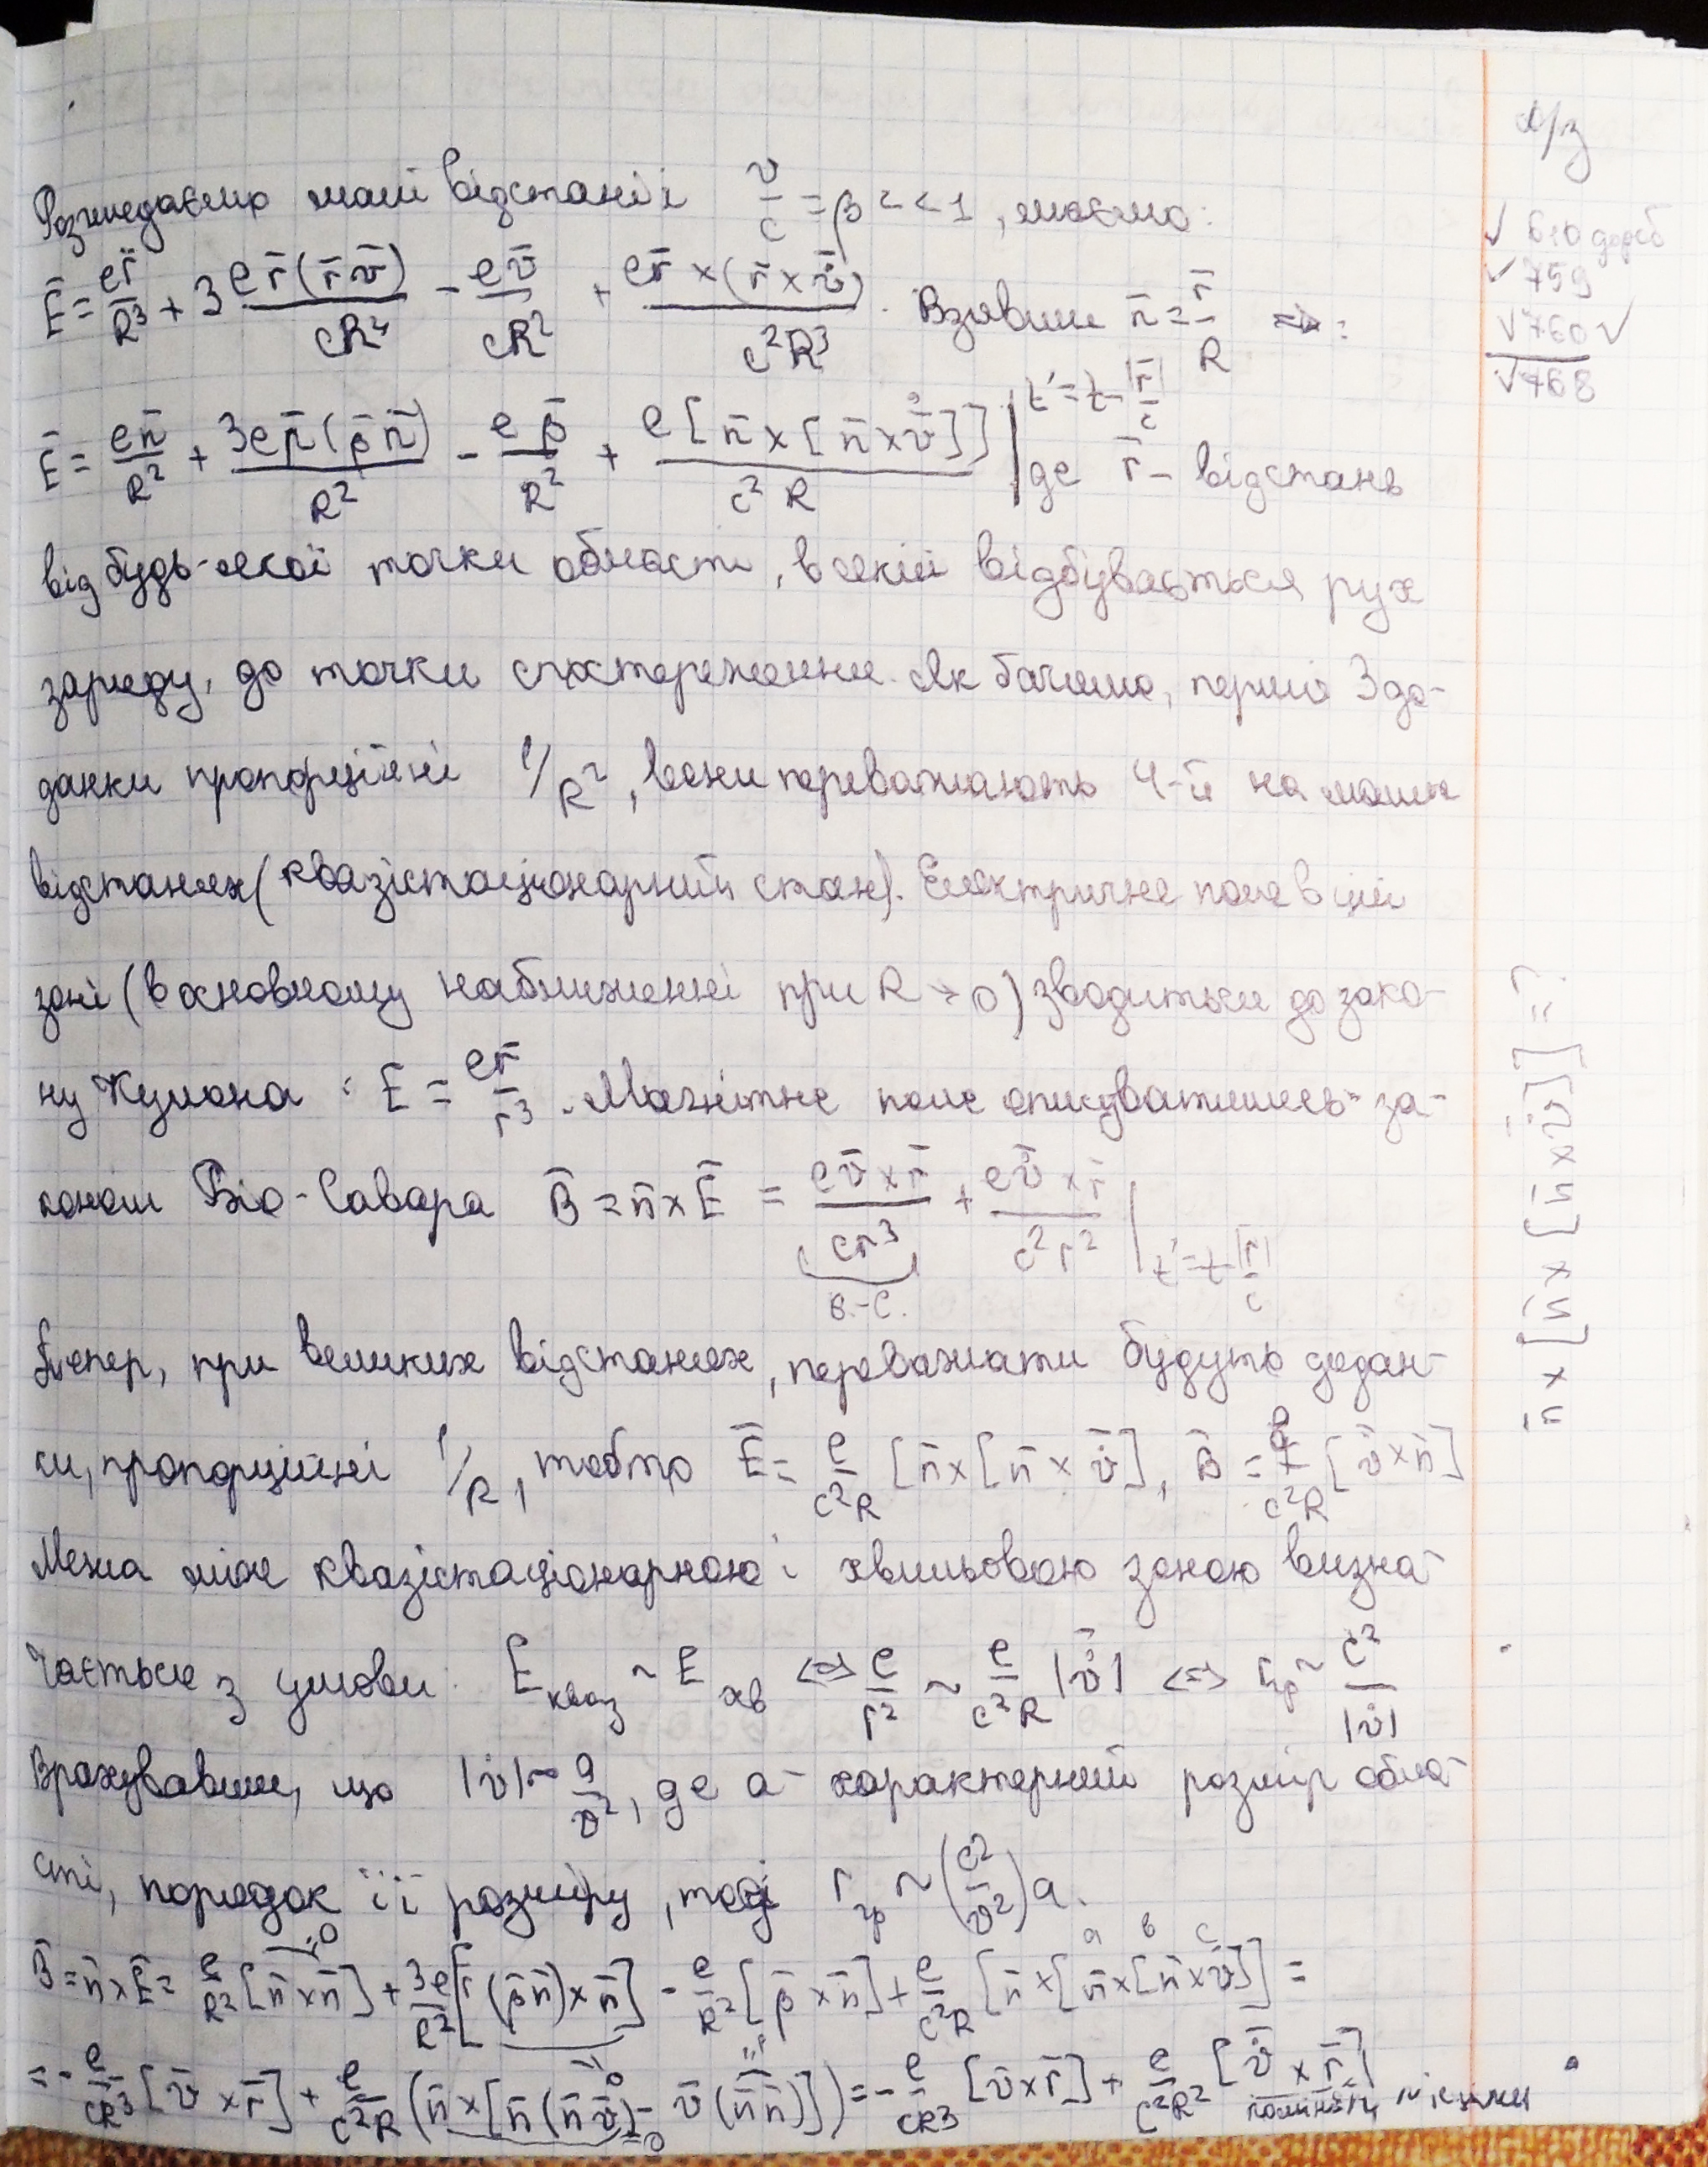 Розглядаємо малі відстані і v/c = β << 1, маємо:
Ē = er̄/R³ + 3 er̄(r̄v̄)/cR⁴ - ev̄/cR² + er̄ × (r̄ × v̄̇)/c²R³. Взявши n̄ = r̄/R ⇒:
Ē = en̄/R² + 3en̄(β̄n̄)/R² - eβ̄/R² + e[n̄ × [n̄ × v̄̇]]/c²R | t' = t - |r̄|/c де r̄ - відстань
від будь-якої точки області, в якій відбувається рух
заряду, до точки спостереження. Як бачимо, перші 3 до-
данки пропорційні 1/R², вони переважають 4-й на малих
відстанях (квазістаціонарний стан). Електричне поле в цій
зоні (в основному наближенні при R → 0) зводиться до зако-
ну Кулона: Ē = er̄/r³. Магнітне поле описуватимесь за-
коном Біо-Савара B̄ = n̄ × Ē = ev̄ × r̄/cr³ + ev̄̇ × r̄/c²r² | t' = t - |r̄|/c
Б.-С.
Тепер, при великих відстанях, переважати будуть додан-
ки, пропорційні 1/R, тобто Ē = e/c²R [n̄ × [n̄ × v̄̇], B̄ = e/c²R [v̄̇ × n̄]
Межа між квазістаціонарною і хвильовою зоною визна-
чається з умови: Ē кваз ~ Ē хв <=> e/r² ~ e/c²R |v̄̇| <=> r гр ~ c²/|v̇|
Врахувавши, що |v̇| ~ a/v², де a - характерний розмір обла-
сті, порядок її розміру, тоді r гр ~ (c²/v²) a.
B̄ = n̄ × Ē = e/R² [n̄ × n̄] =0 + 3e/R² [r̄ (β̄n̄) × n̄] - e/R² [β̄ × n̄] + e/c²R [n̄ × [n̄ × [n̄ × v̄̇]] = a b c
= - e/cR³ [v̄ × r̄] + e/c²R (n̄ × [n̄ (n̄v̄̇) - v̄̇ (n̄n̄)]) = - e/cR³ [v̄ × r̄] + e/c²R² [v̄̇ × r̄]
=0
поміняти місцями
д/з
√ 610 дороб
√ 759
√ 760 √
√ 768
n̄ × [n̄ × [n̄ × v̄̇]] = ?